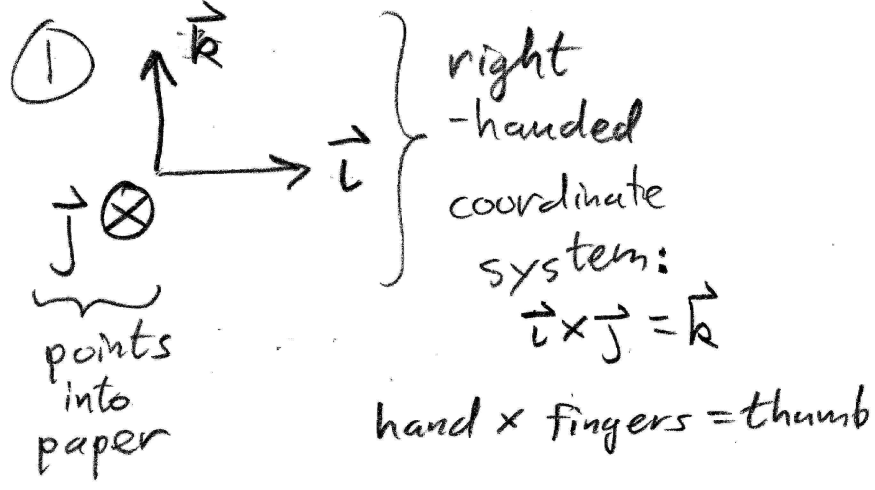 ①
k⃗
i⃗
j⃗ ⊗
points
into
paper
right
-handed
coordinate
system:
i⃗ × j⃗ = k⃗
hand × fingers = thumb